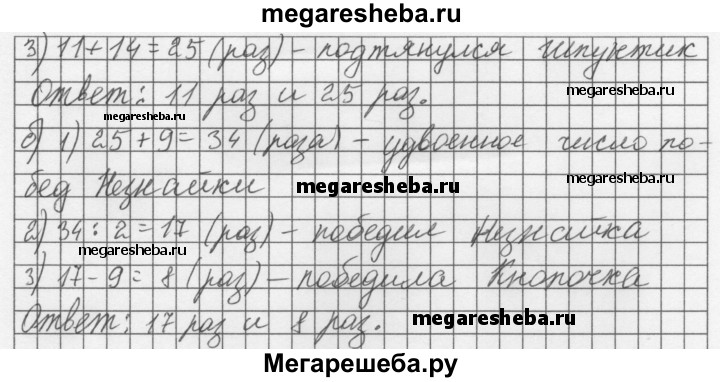 megaresheba.ru
3) 11+14=25 (раз) – подтянулся Шпунтик
Ответ: 11 раз и 25 раз.
megaresheba.ru
megaresheba.ru
б) 1) 25+9=34 (раза) – удвоенное число по-
megaresheba.ru
бед Незнайки
megaresheba.ru
megaresheba.ru
2) 34:2=17 (раз) – победил Незнайка
megaresheba.ru
3) 17-9=8 (раз) – победила Кнопочка
Ответ: 17 раз и 8 раз.
megaresheba.ru
Мегарешеба.ру